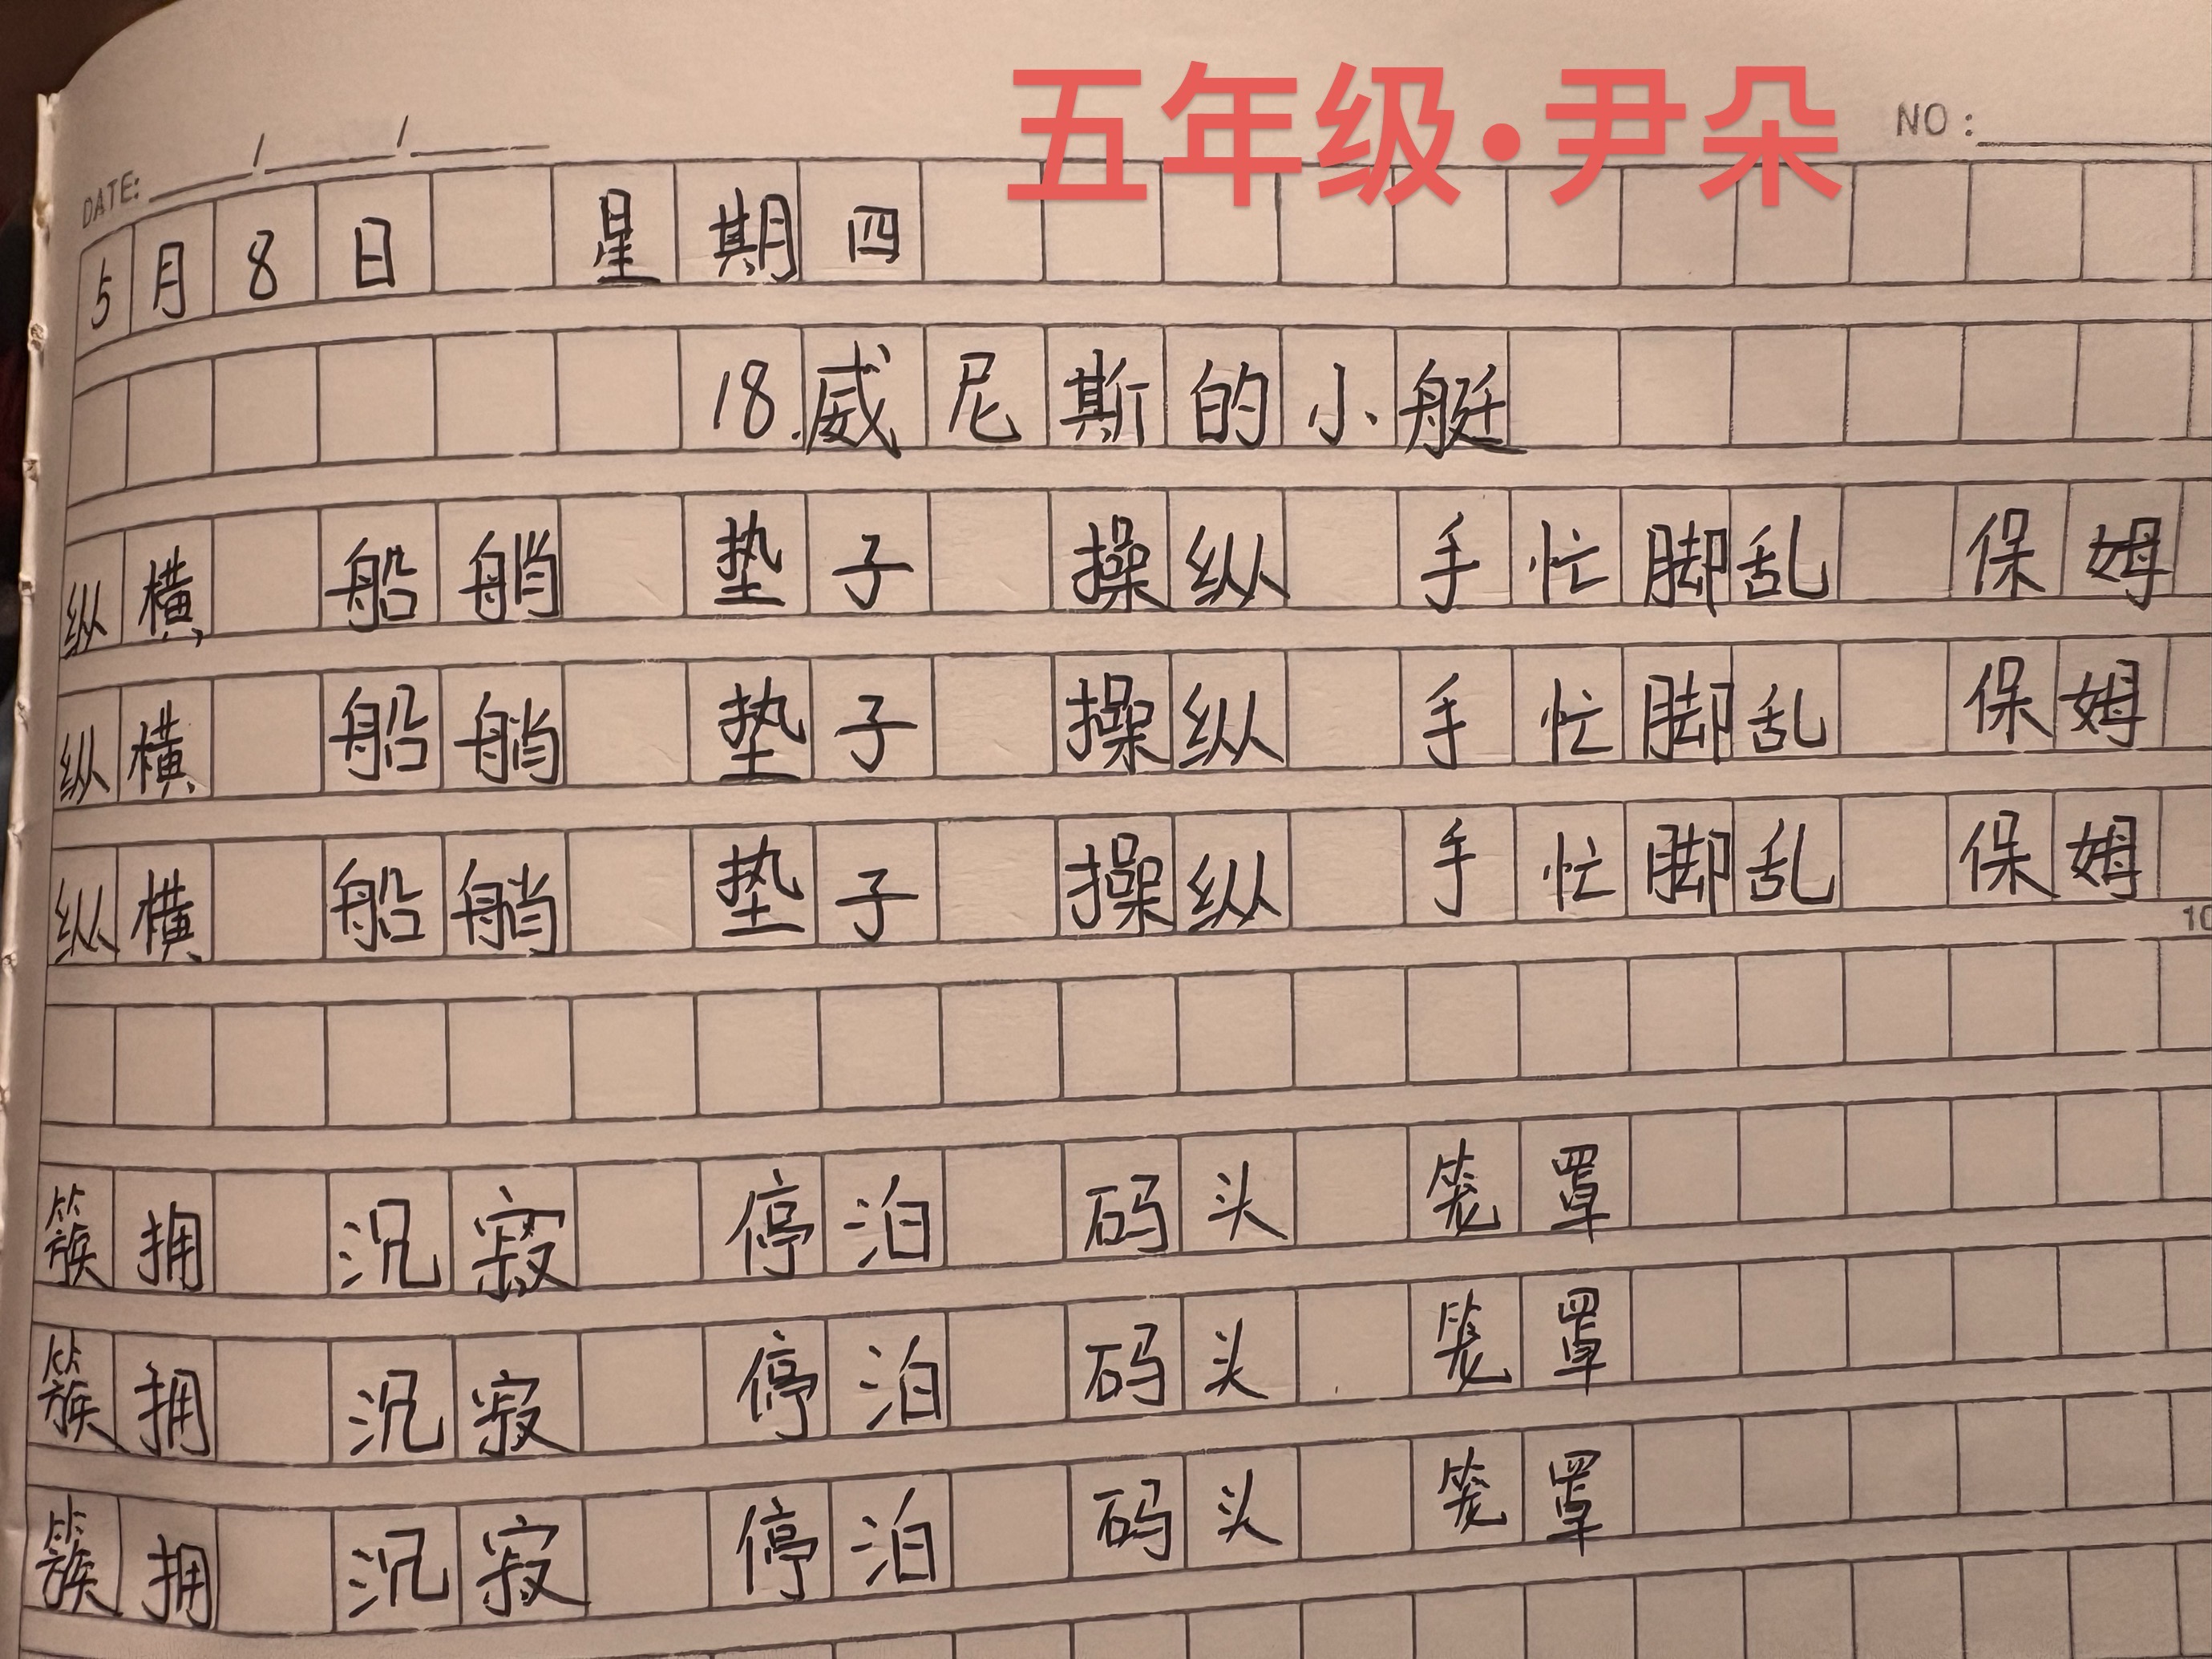 五年级·尹朵
DATE: / /
NO:
5月8日 星期四
18.威尼斯的小艇
纵横 船艄 垫子 操纵 手忙脚乱 保姆
纵横 船艄 垫子 操纵 手忙脚乱 保姆
纵横 船艄 垫子 操纵 手忙脚乱 保姆
10
簇拥 沉寂 停泊 码头 笼罩
簇拥 沉寂 停泊 码头 笼罩
簇拥 沉寂 停泊 码头 笼罩